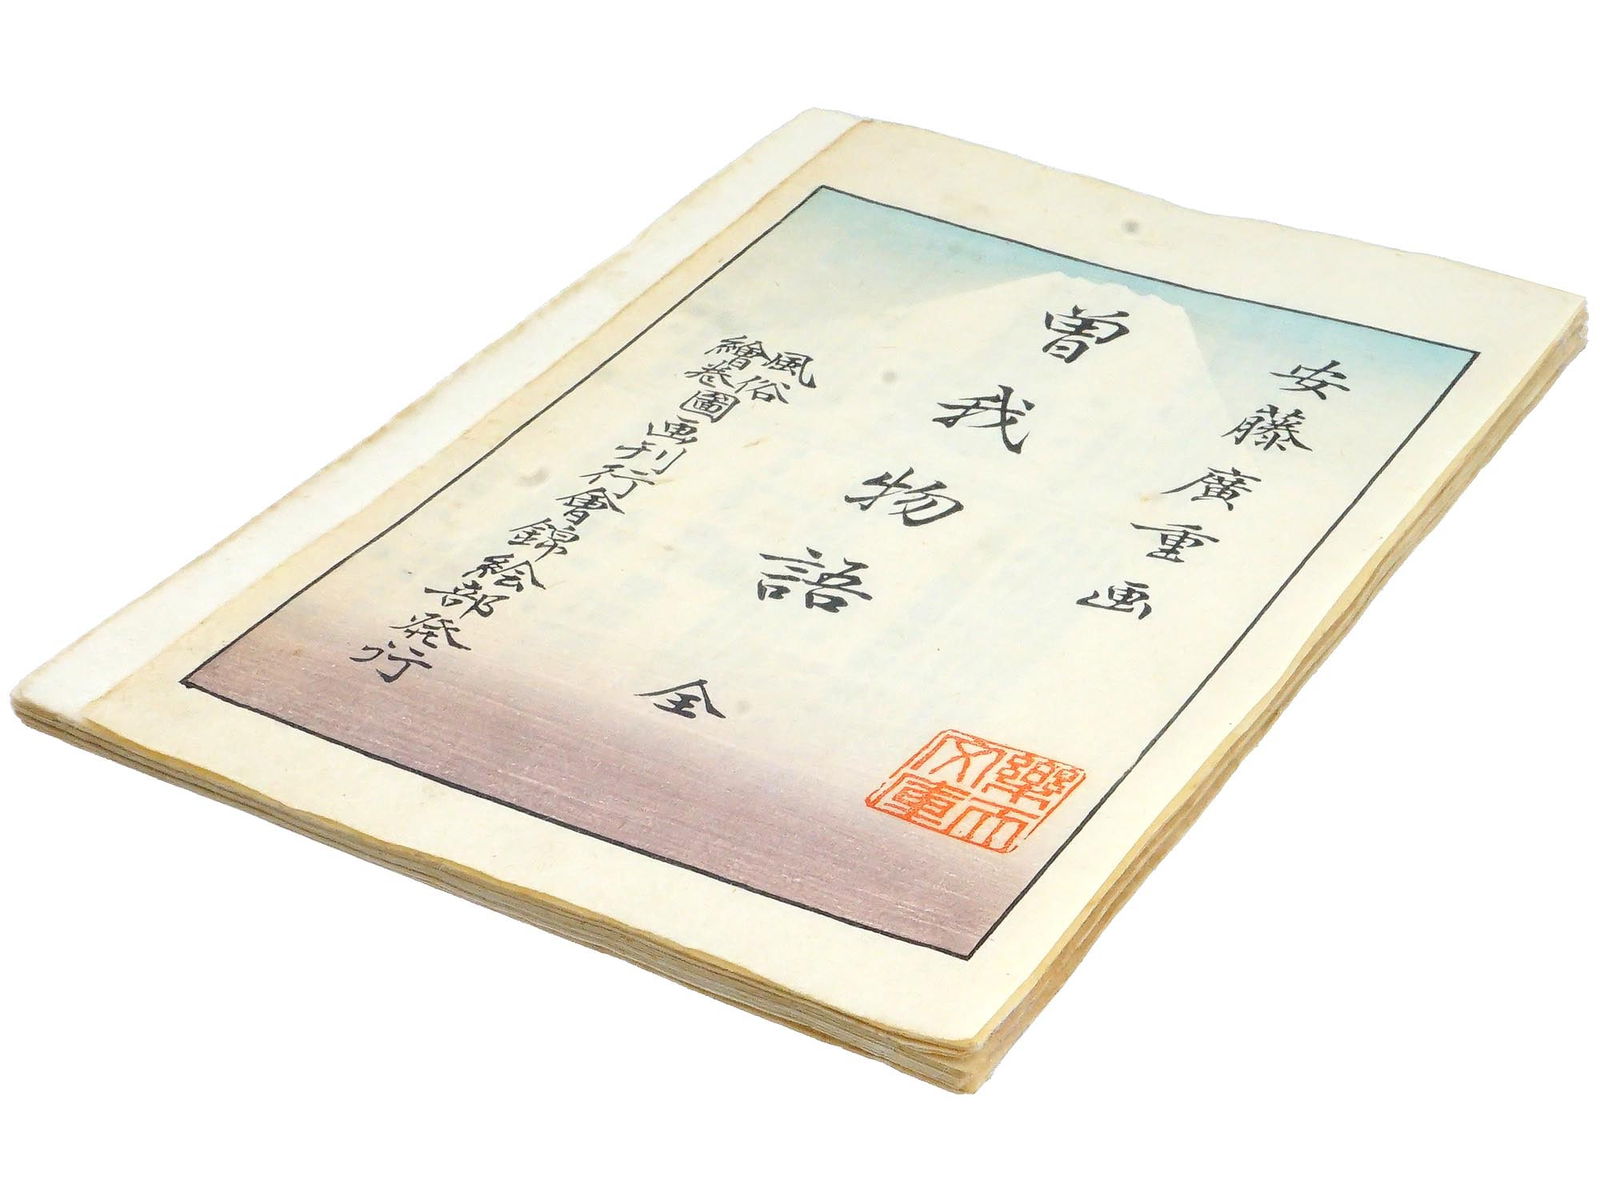 安藤廣重画
曽我物語 全
風俗
繪巻
圖画刊行會錦絵部発行
樂
文庫